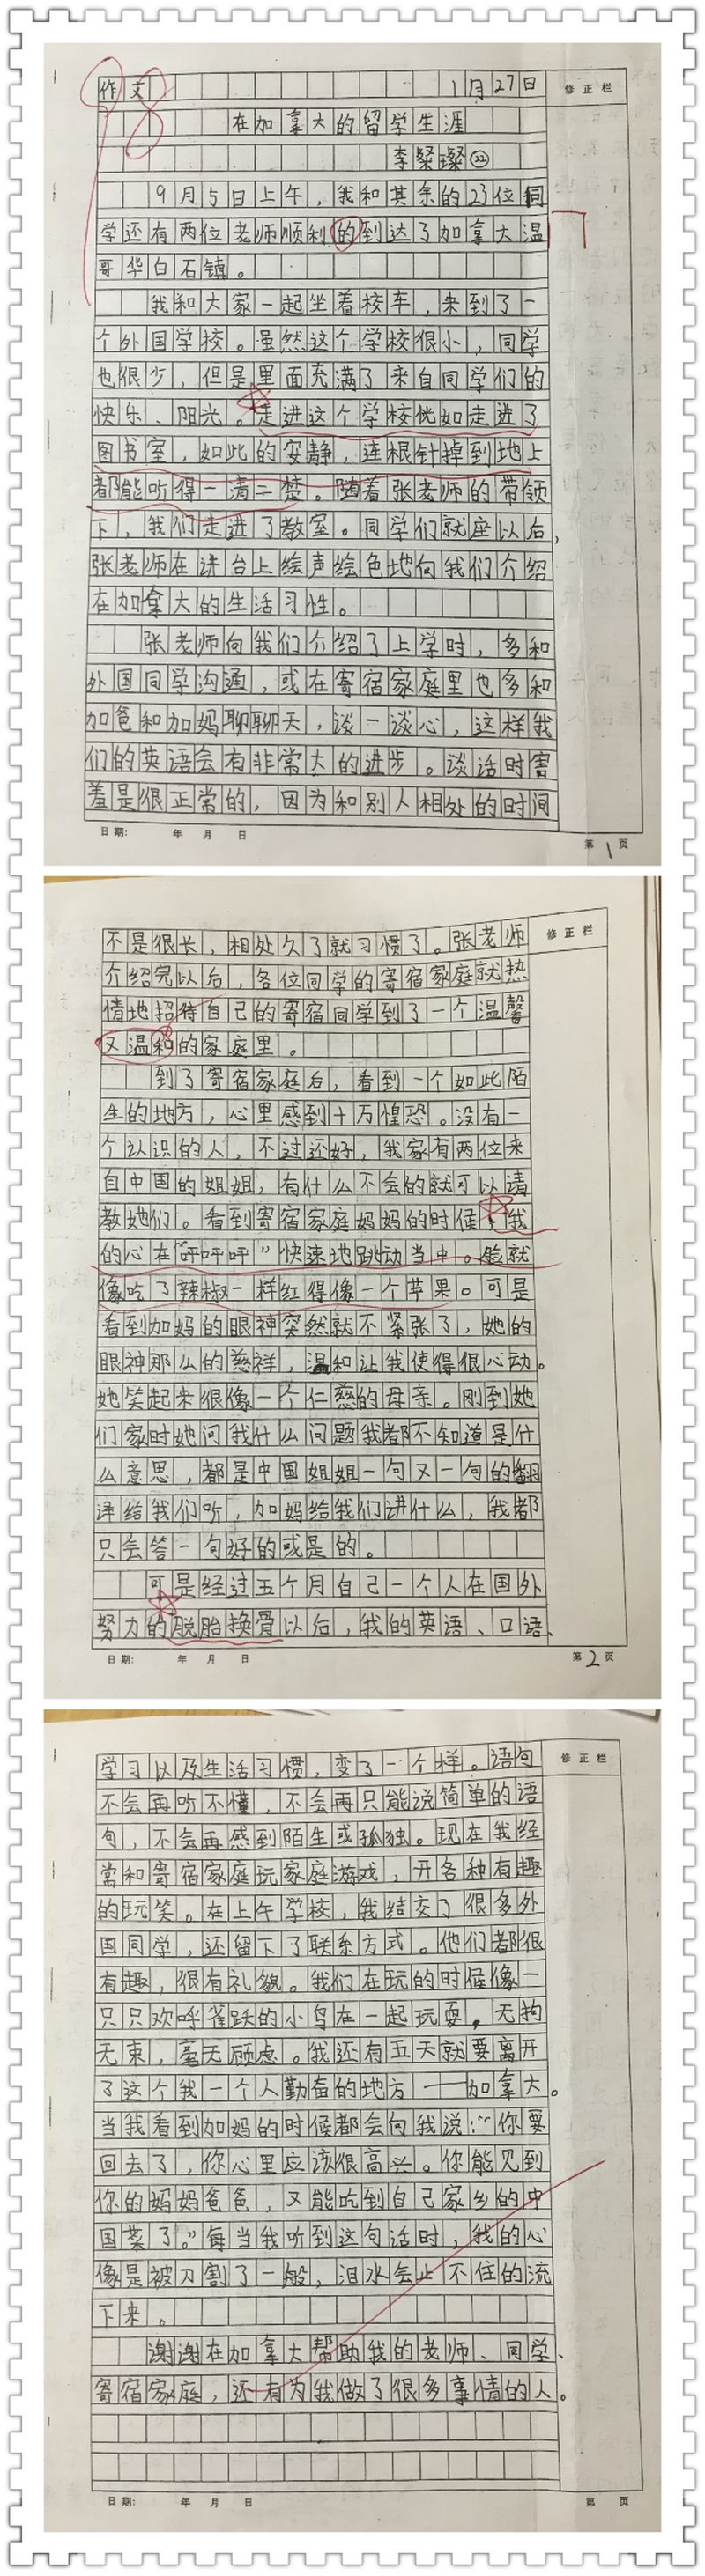 98
作文 1月27日 修正栏
在加拿大的留学生涯
李粲璨㉒
9月5日上午，我和其余的23位同
学还有两位老师顺利的到达了加拿大温
哥华白石镇。
我和大家一起坐着校车，来到了一
个外国学校。虽然这个学校很小，同学
也很少，但是里面充满了来自同学们的
快乐、阳光。走进这个学校恍如走进了
图书室，如此的安静，连根针掉到地上
都能听得一清二楚。随着张老师的带领
下，我们走进了教室。同学们就座以后，
张老师在讲台上绘声绘色地向我们介绍
在加拿大的生活习性。
张老师向我们介绍了上学时，多和
外国同学沟通，或在寄宿家庭里也多和
加爸和加妈聊聊天，谈一谈心，这样我
们的英语会有非常大的进步。谈话时害
羞是很正常的，因为和别人相处的时间
日期： 年 月 日 第1页
不是很长，相处久了就习惯了。张老师 修正栏
介绍完以后，各位同学的寄宿家庭就热
情地招待自己的寄宿同学到了一个温馨
又温和的家庭里。
到了寄宿家庭后，看到一个如此陌
生的地方，心里感到十万惶恐。没有一
个认识的人，不过还好，我家有两位来
自中国的姐姐，有什么不会的就可以请
教她们。看到寄宿家庭妈妈的时候，我
的心在“呯呯呯”快速地跳动当中。脸就
像吃了辣椒一样红得像一个苹果。可是
看到加妈的眼神突然就不紧张了，她的
眼神那么的慈祥，温和让我使得很心动。
她笑起来很像一个仁慈的母亲。刚到她
们家时她问我什么问题我都不知道是什
么意思，都是中国姐姐一句又一句的翻
译给我们听，加妈给我们讲什么，我都
只会答一句好的或是的。
可是经过五个月自己一个人在国外
努力的脱胎换骨以后，我的英语、口语、
日期： 年 月 日 第2页
学习以及生活习惯，变了一个样。语句 修正栏
不会再听不懂，不会再只能说简单的语
句，不会再感到陌生或孤独。现在我经
常和寄宿家庭玩家庭游戏，开各种有趣
的玩笑。在上午学校，我结交了很多外
国同学，还留下了联系方式。他们都很
有趣，很有礼貌。我们在玩的时候像一
只只欢呼雀跃的小鸟在一起玩耍，无拘
无束，毫无顾虑。我还有五天就要离开
了这个我一个人勤奋的地方——加拿大。
当我看到加妈的时候都会向我说：“你要
回去了，你心里应该很高兴。你能见到
你的妈妈爸爸，又能吃到自己家乡的中
国菜了。”每当我听到这句话时，我的心
像是被刀割了一般，泪水会止不住的流
下来。
谢谢在加拿大帮助我的老师、同学、
寄宿家庭，还有为我做了很多事情的人。
日期： 年 月 日 第 页